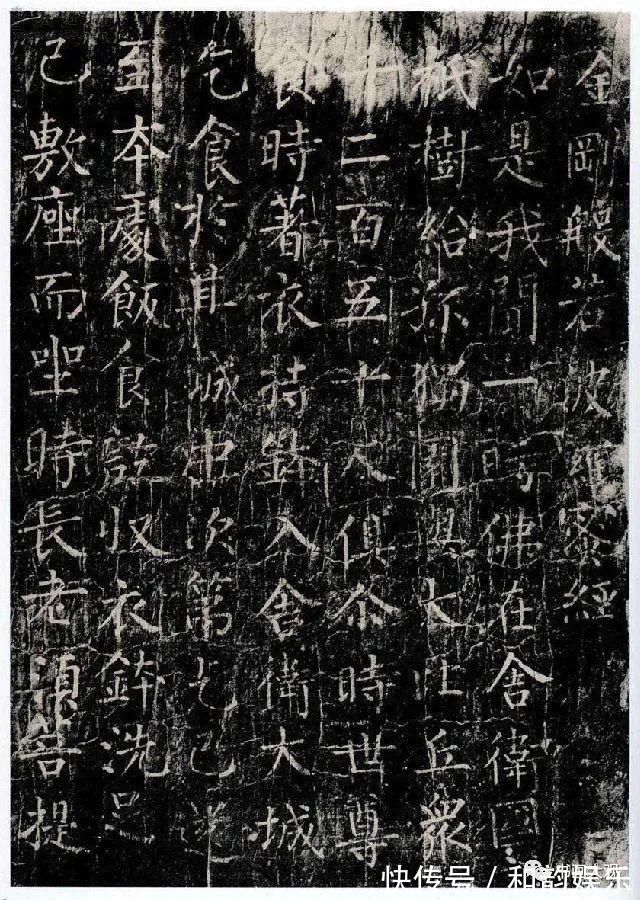 金剛般若波羅蜜經
如是我聞一時佛在舍衛國
祇樹給孤獨園與大比丘衆
千二百五十人俱尒時世尊
食時著衣持鉢入舍衛大城
乞食於其城中次第乞已還
至本處飯食訖収衣鉢洗足
已敷座而坐時長老須菩提
快传号 / 和韵娱乐